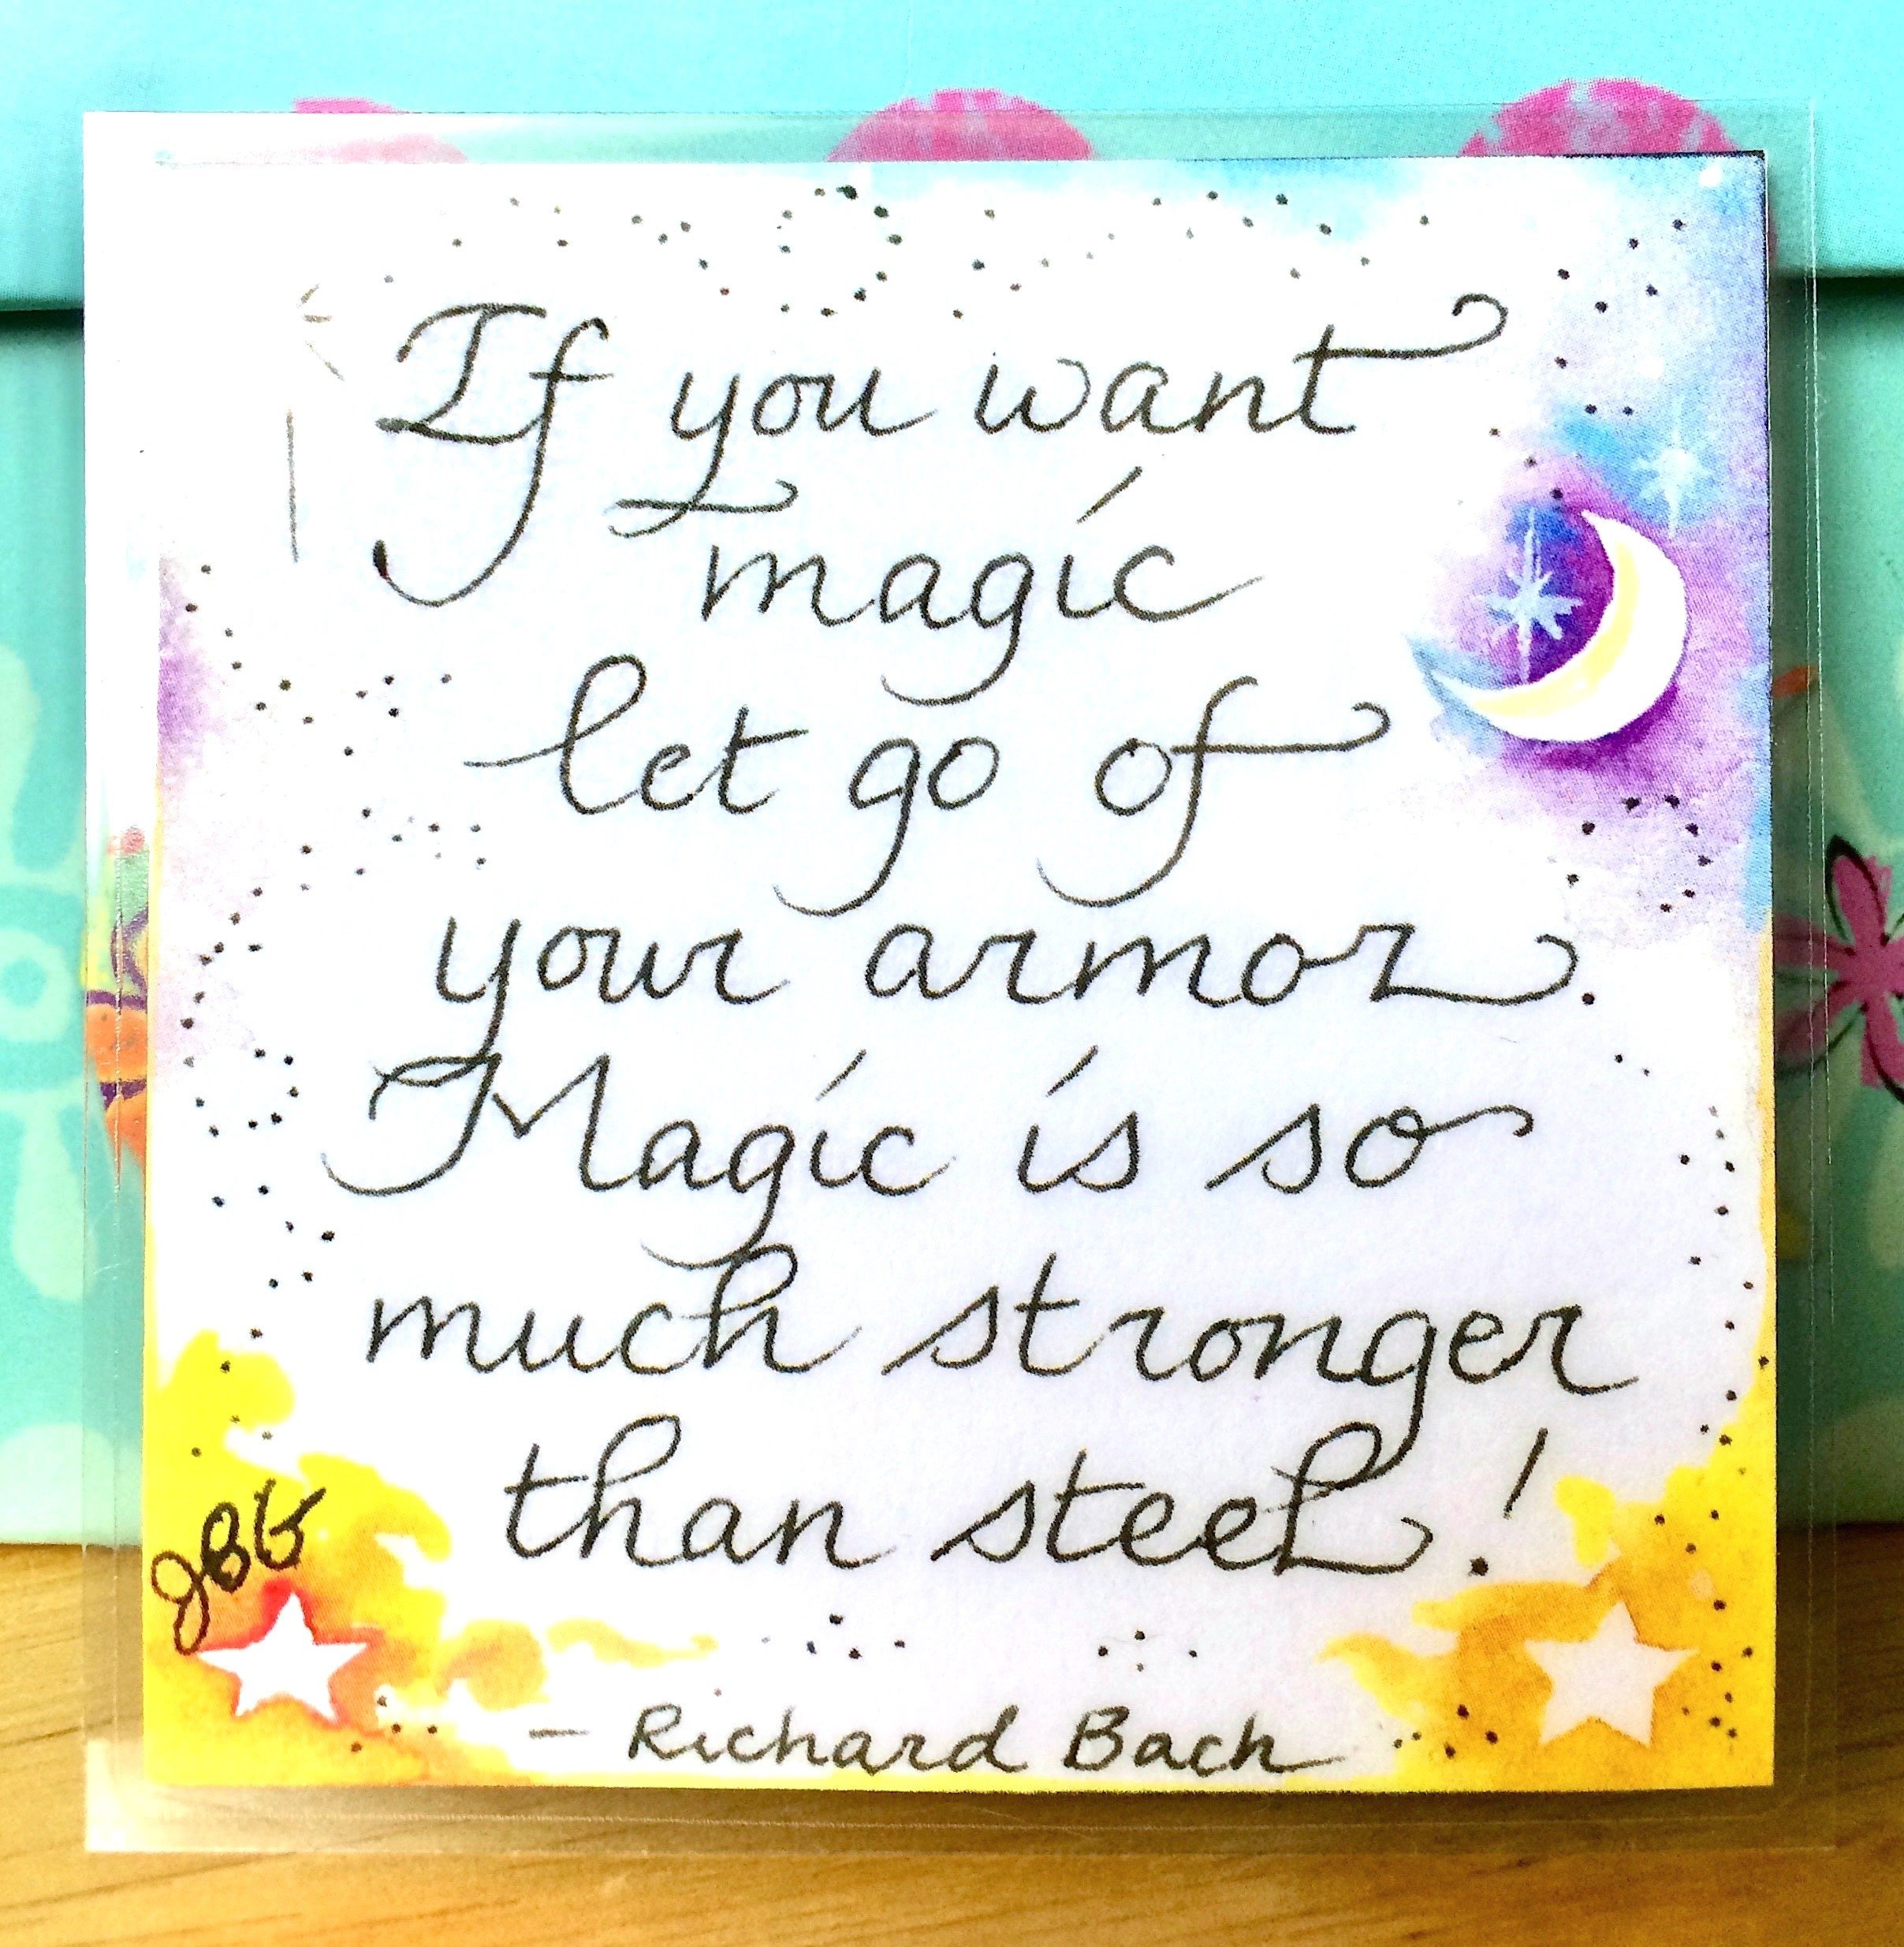 If you want
magic
let go of
your armor.
Magic is so
much stronger
than steel!
JBG
- Richard Bach